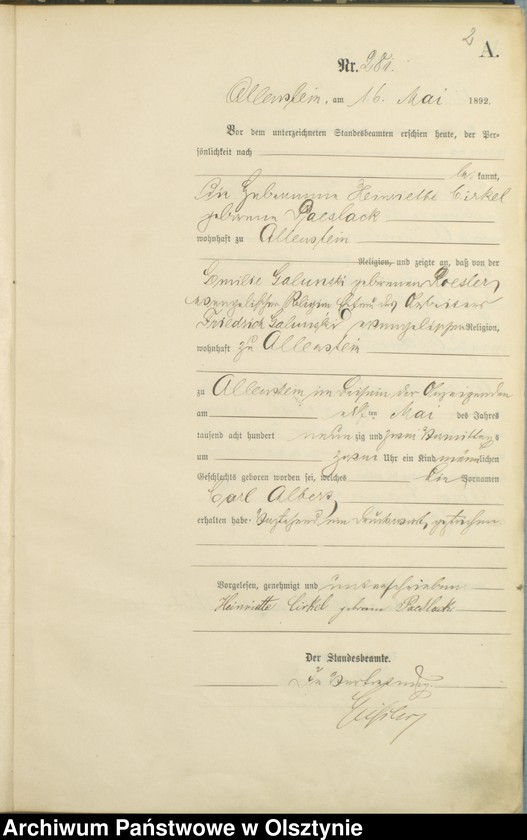 2
A.
Nr. 281.
Allenstein, am 16. Mai 1892.
Vor dem unterzeichneten Standesbeamten erschien heute, der Per-
sönlichkeit nach
be kannt,
die Hebeamme Henriette Cirkel
geborene Paeslack
wohnhaft zu Allenstein
Religion, und zeigte an, daß von der
Emilie Galunski geborenen Roesler,
evangelischer Religion Ehefrau des Arbeiters
Friedrich Galunski evangelischer Religion,
wohnhaft zu Allenstein
zu Allenstein im Beisein der Anzeigenden
am ten Mai des Jahres
tausend acht hundert neun zig und zwei Vormittags
um Uhr ein Kind männlichen
Geschlechts geboren worden sei, welches die Vornamen
Carl Albert
erhalten habe. Vorstehend ein Druckwort gestrichen.
Vorgelesen, genehmigt und unterschrieben
Henriette Cirkel geborene Paeslack
Der Standesbeamte.
In Vertretung
Archiwum Państwowe w Olsztynie